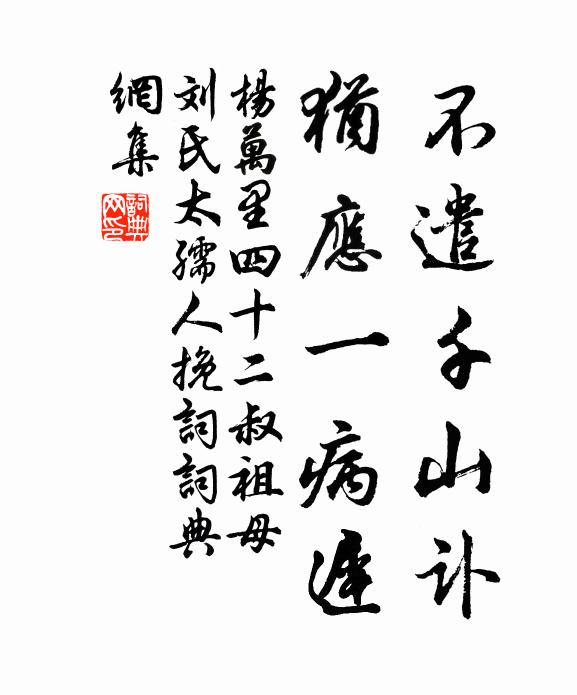 不遣千山訃
猶應一病遲
楊萬里四十二叔祖母
刘氏太孺人挽詞詞典
網集
詞典网印